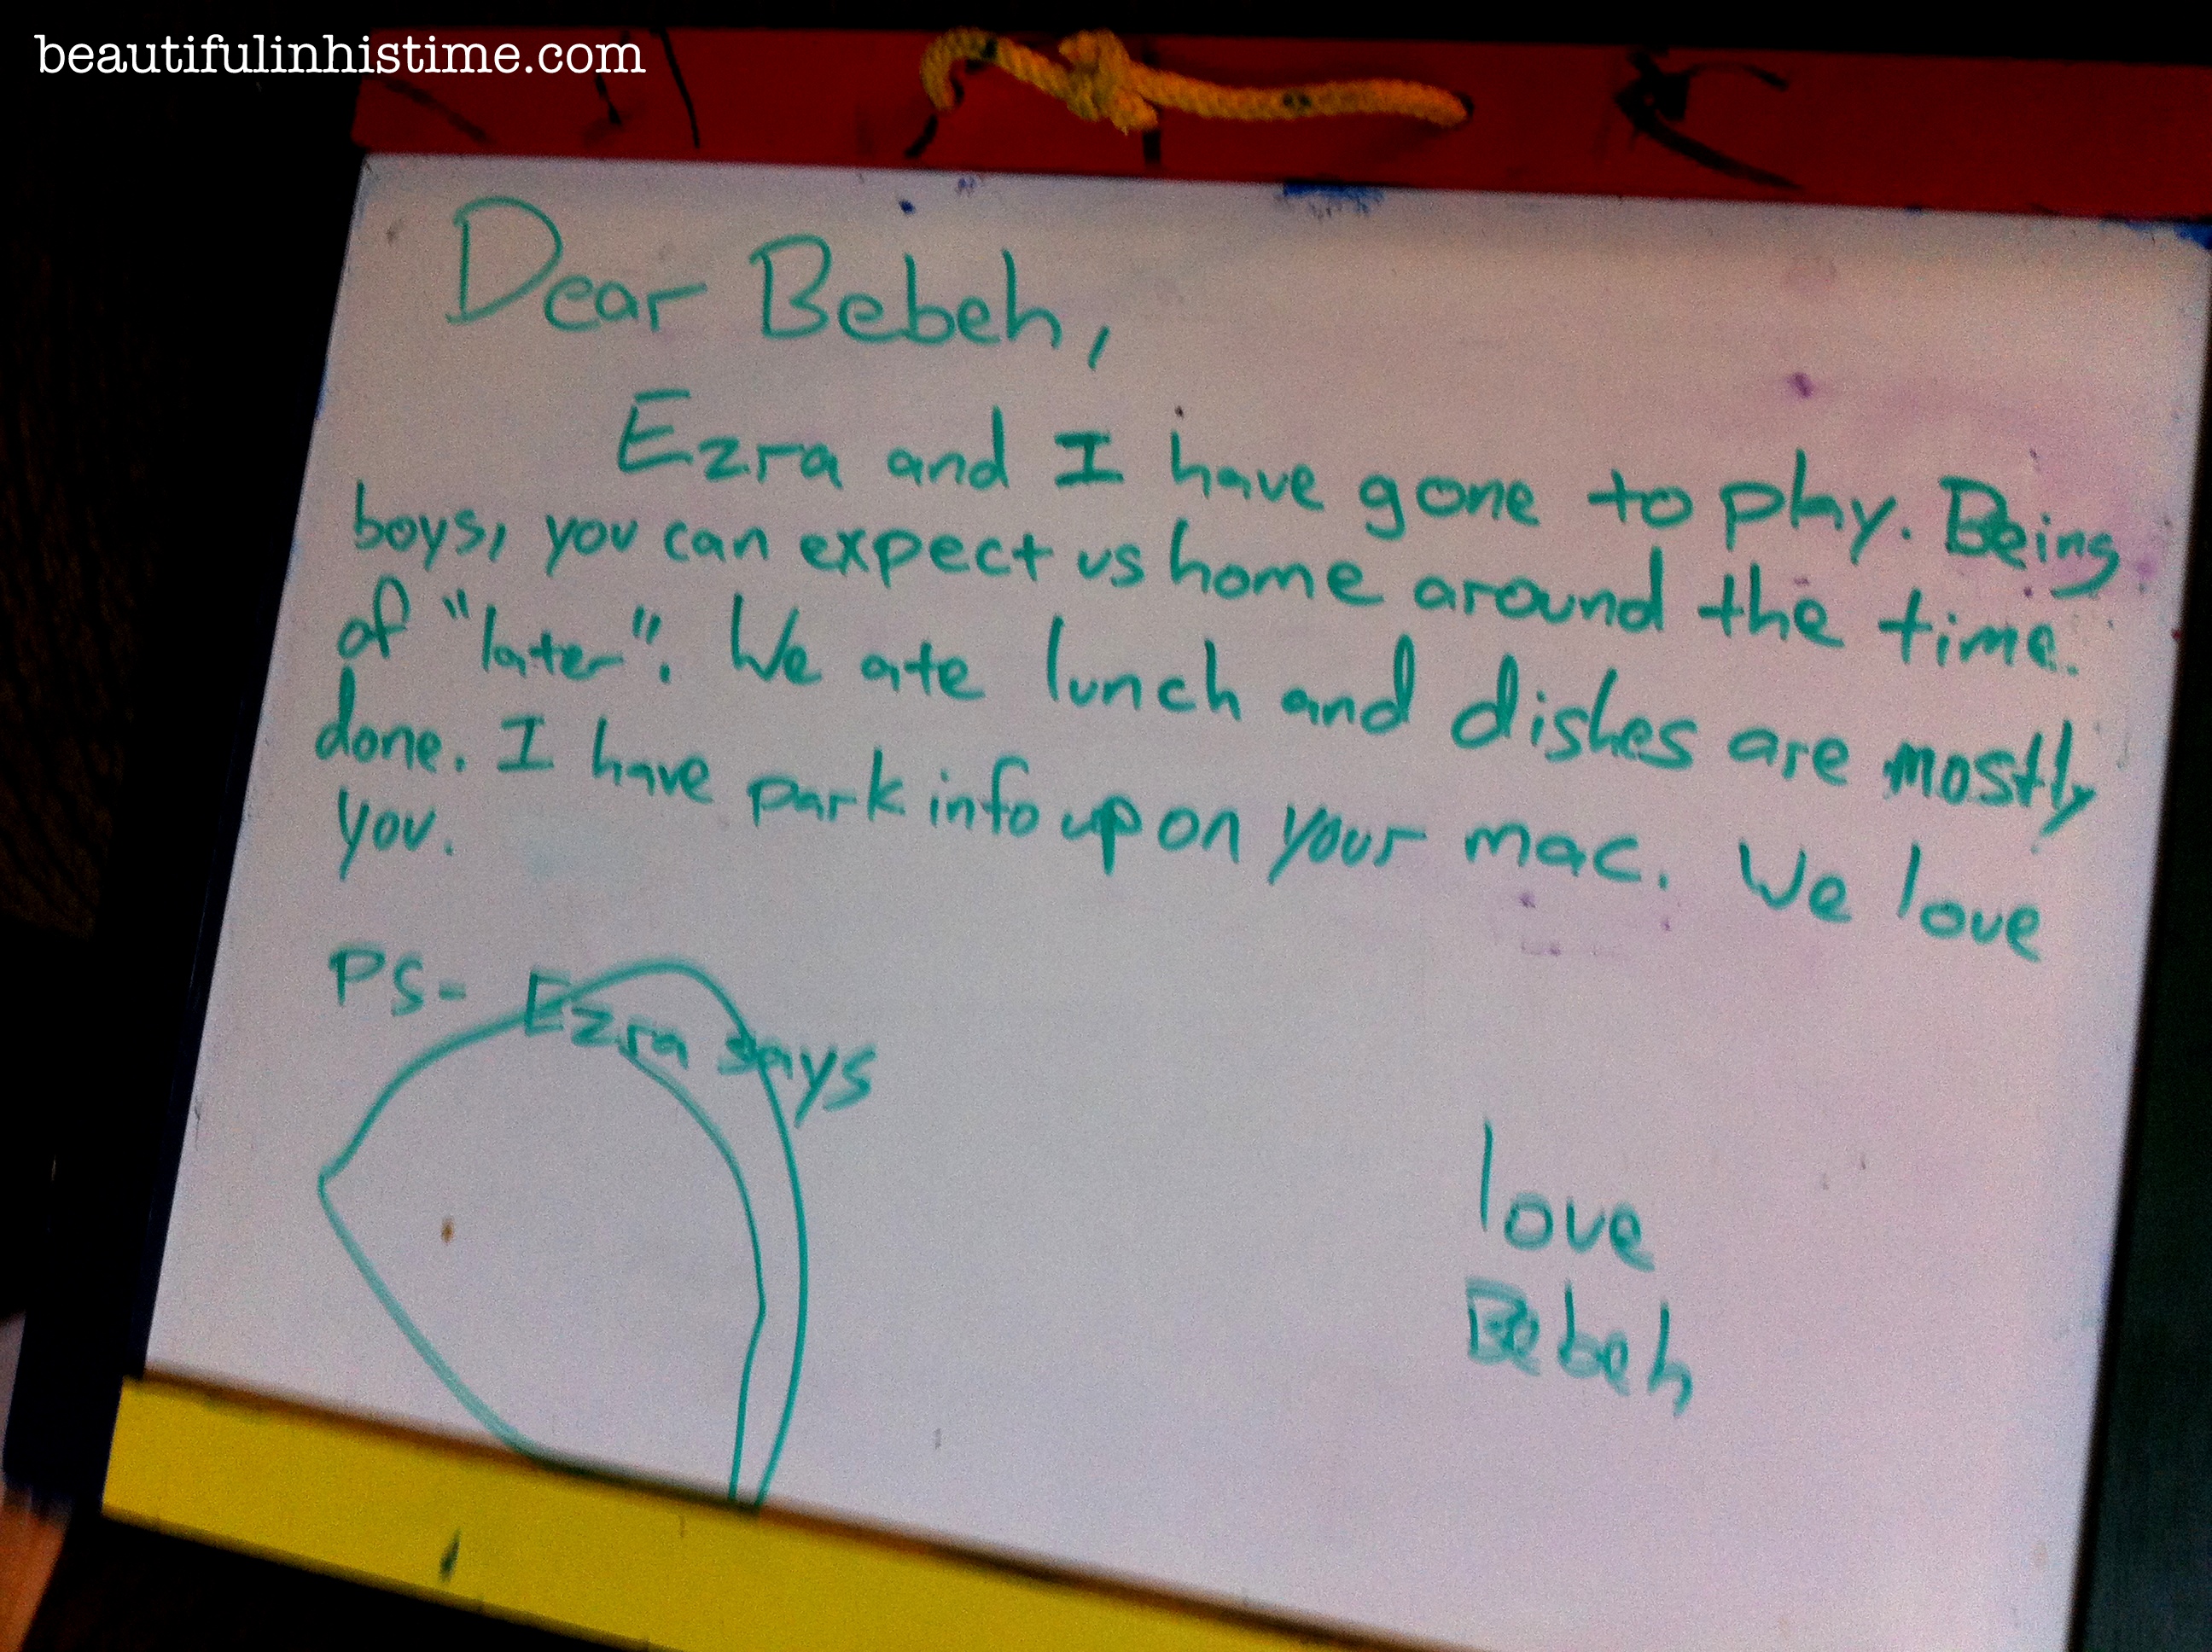 beautifulinhistime.com
Dear Bebeh,
Ezra and I have gone to play. Being
boys, you can expect us home around the time
of "later". We ate lunch and dishes are mostly
done. I have park info up on your mac. We love
you.
PS- Ezra says
love
Bebeh